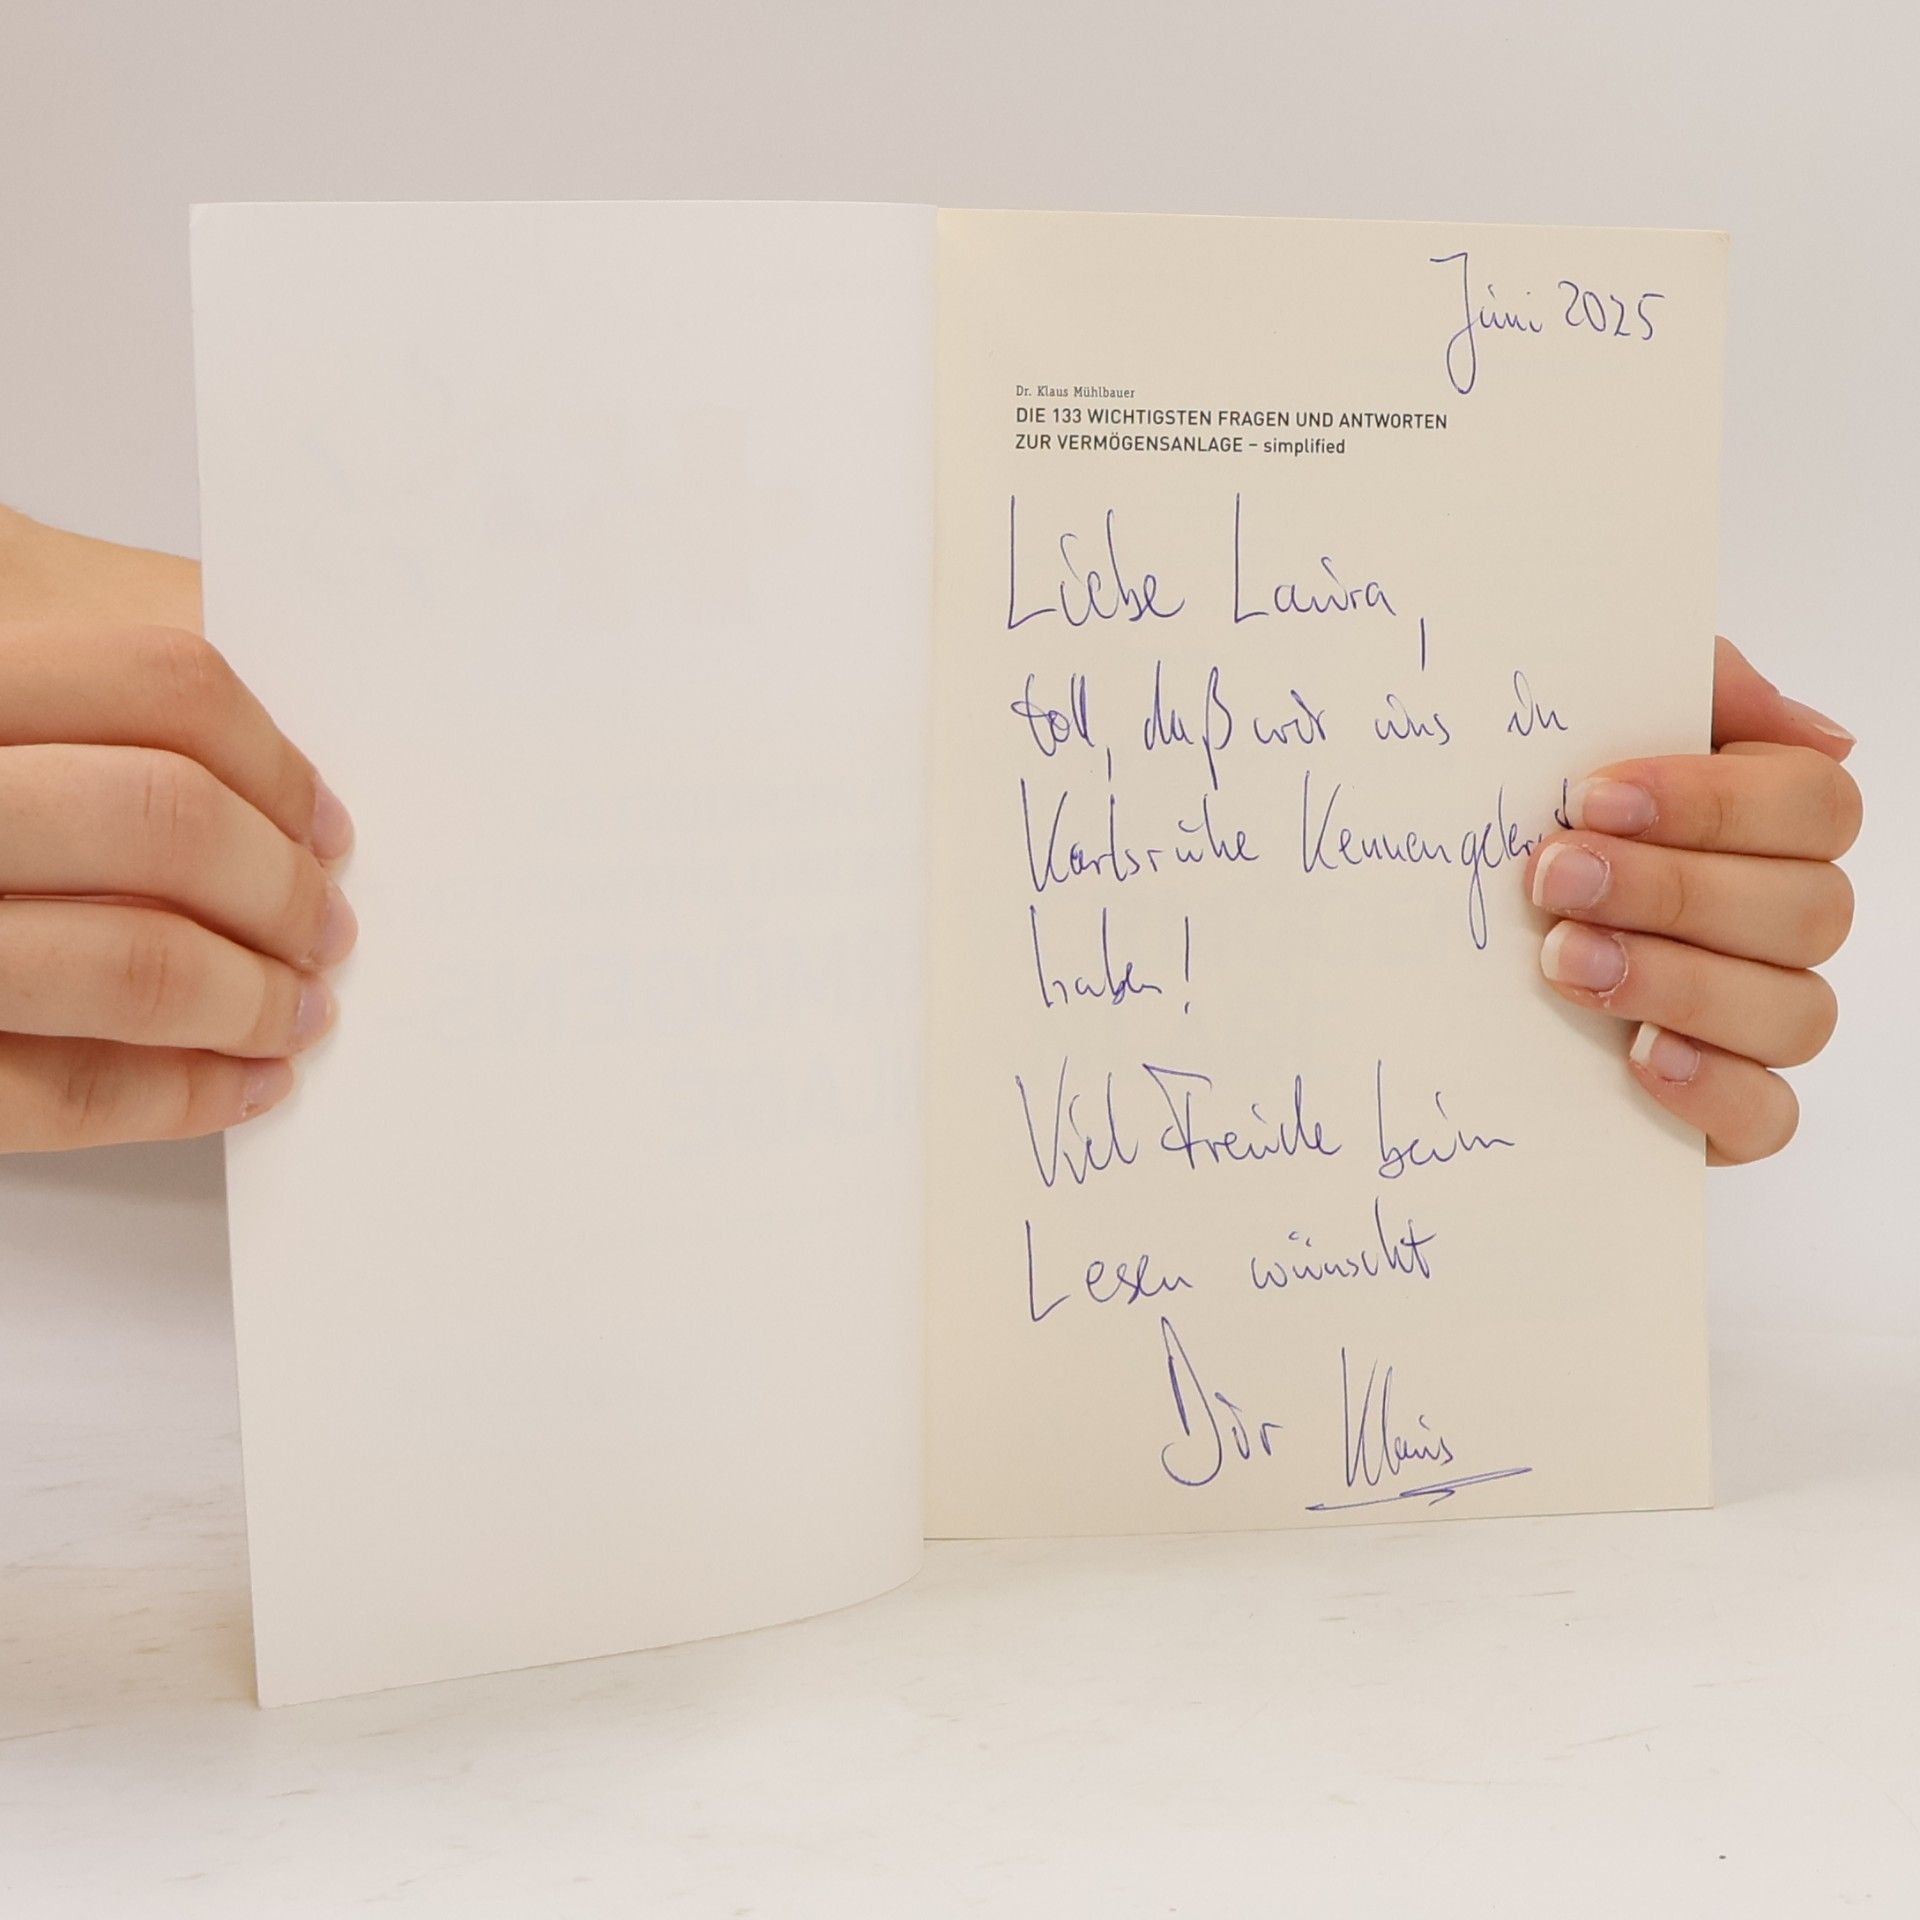 Juni 2025
Dr. Klaus Mühlbauer
DIE 133 WICHTIGSTEN FRAGEN UND ANTWORTEN
ZUR VERMÖGENSANLAGE – simplified
Liebe Laura,
toll, daß wir uns in
Karlsruhe
haben!
Viel Freude beim
Lesen wünscht
Dir Klaus